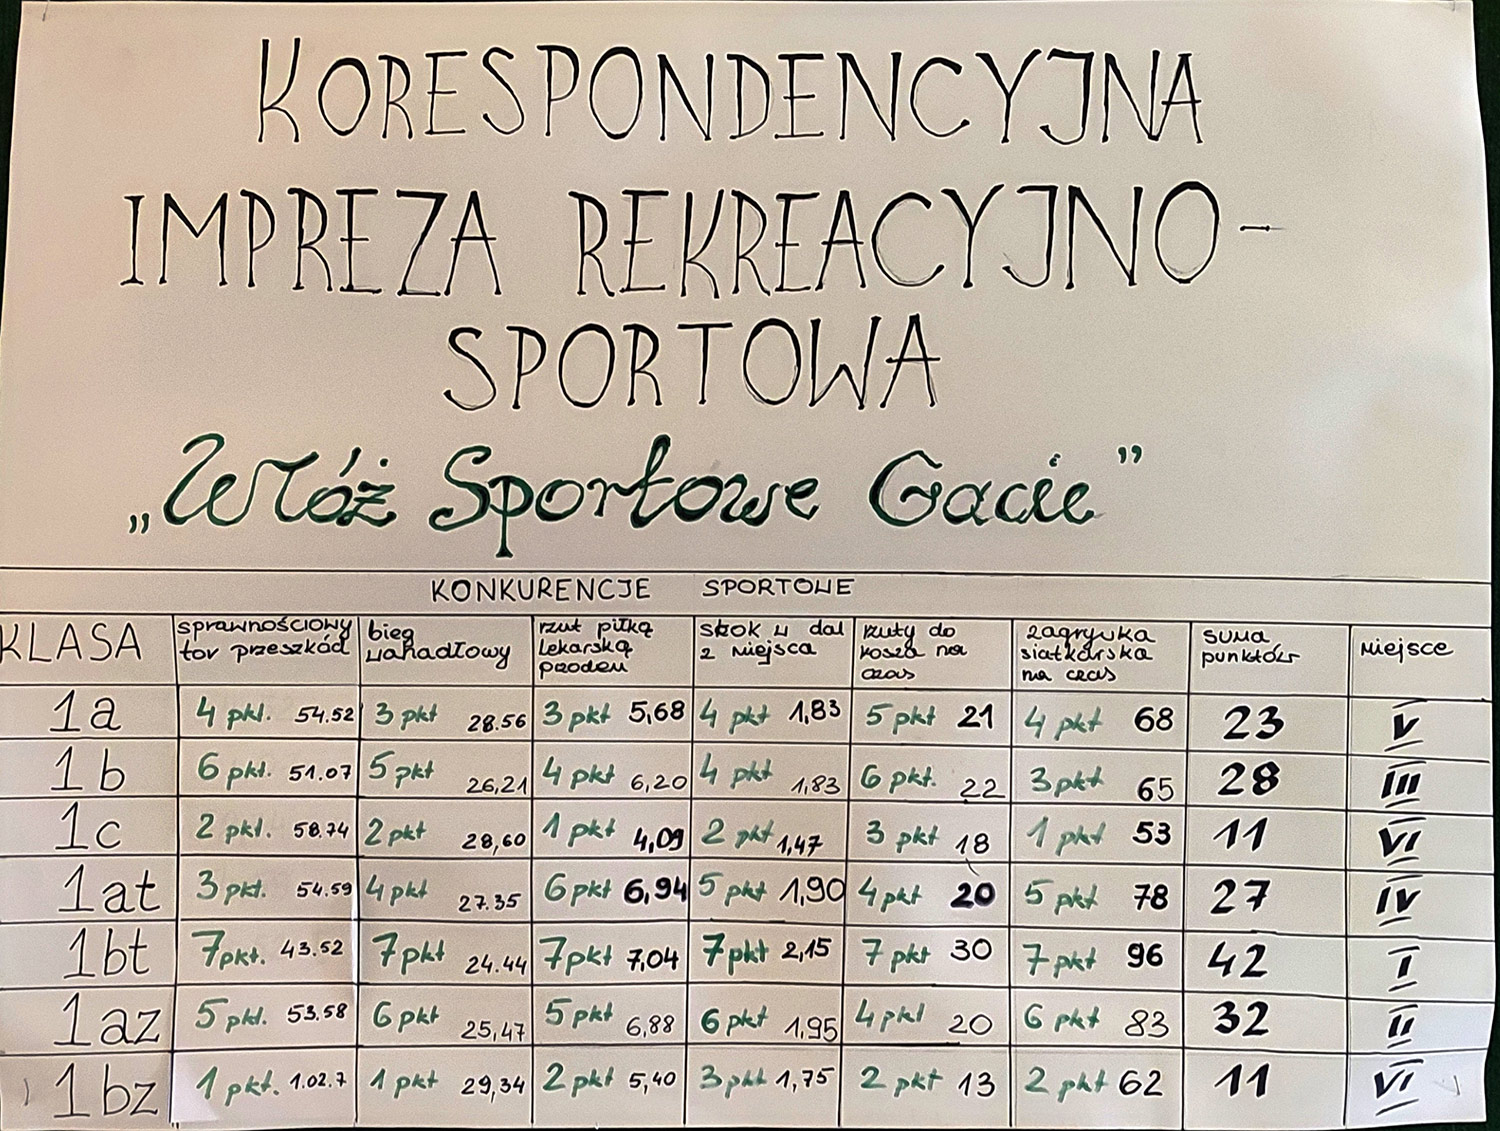 KORESPONDENCYJNA
IMPREZA REKREACYJNO-
SPORTOWA
„Włóż Sportowe Gacie”
KONKURENCJE SPORTOWE
KLASA sprawnościowy tor przeszkód bieg wahadłowy rzut piłką lekarską przodem skok w dal z miejsca rzuty do kosza na czas zagrywka siatkarska na czas suma punktów miejsce
1a 4 pkt. 54.52 3 pkt 28.56 3 pkt 5,68 4 pkt 1,83 5 pkt 21 4 pkt 68 23 V
1b 6 pkt. 51.07 5 pkt 26,21 4 pkt 6,20 4 pkt 1,83 6 pkt. 22 3 pkt 65 28 III
1c 2 pkt. 58.74 2 pkt 28,60 1 pkt 4,09 2 pkt 1,47 3 pkt 18 1 pkt 53 11 VI
1at 3 pkt. 54.59 4 pkt 27.35 6 pkt 6,94 5 pkt 1,90 4 pkt 20 5 pkt 78 27 IV
1bt 7 pkt. 43.52 7 pkt 24.44 7 pkt 7,04 7 pkt 2,15 7 pkt 30 7 pkt 96 42 I
1az 5 pkt. 53.58 6 pkt 25,47 5 pkt 6,88 6 pkt 1,95 4 pkt 20 6 pkt 83 32 II
1bz 1 pkt. 1.02.7 1 pkt 29,34 2 pkt 5,40 3 pkt 1,75 2 pkt 13 2 pkt 62 11 VI